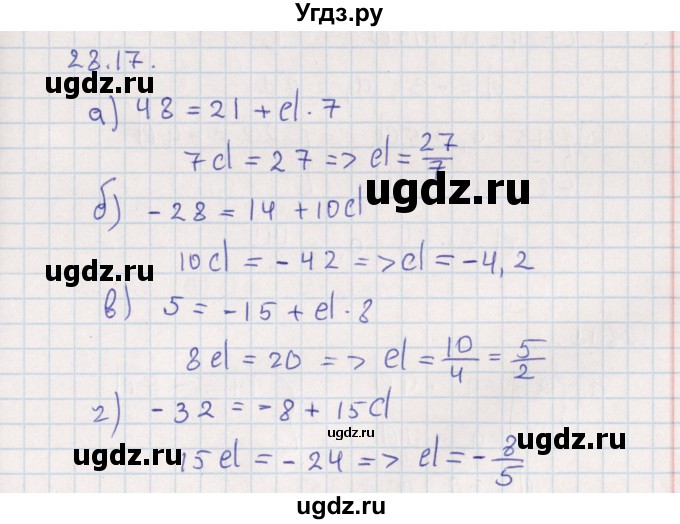 Угдз.ру
28.17.
ugdz.ru
а) 48 = 21 + d · 7
ugdz.ru
7d = 27 => d = 27/7
ugdz.ru
б) -28 = 14 + 10d
10d = -42 => d = -4,2
ugdz.ru
в) 5 = -15 + d · 8
8d = 20 => d = 10/4 = 5/2
г) -32 = -8 + 15d
ugdz.ru
ugdz.ru
15d = -24 => d = -8/5
ugdz.ru
ugdz.ru